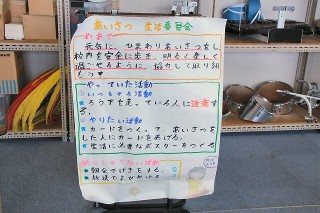 あいさつ 生活委員会
めあて
元気に、ひまわりあいさつをし、
校内を安全に歩き、明るく楽しく
過ごせるように、協力して取り組
もう
やっていた活動
ろうかを走っている人に注意す
る。
やりたい活動
カードをつくって、あいさつを
した人にカードをあげる。
生活に必要なポスターをつくる
やりたい活動
朝会で
放送でよびかける